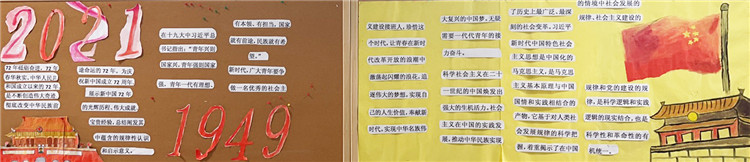 2021
72年砥砺奋进，72年
春华秋实，中华人民共
和国成立以来的72年
是不断创造伟大奇迹
彻底改变中华民族前
途命运的72年。为庆
祝新中国成立72周年
展示新中国成立72年
的光辉历程、伟大成就
宝贵经验，总结阐发其
中蕴含的规律性认识
和启示意义。
在十九大中习近平总
书记指出：“青年兴则
国家兴，青年强则国家
强。青年一代有理想、
有本领、有担当，国家
就有前途，民族就有希
望。”
新时代，广大青年要争
做一名优秀的社会主
1949
义建设接班人，珍惜这
个时代，让青春在新时
代改革开放的浪潮中
激荡起闪耀的浪花。追
逐伟大的梦想，实现自
己的人生价值，奉献新
时代。实现中华名族伟
大复兴的中国梦，无疑
需要一代代青年的接
力奋斗。
科学社会主义在二十
一世纪的中国焕发出
强大的生机活力。社会
主义在中国的实践发
展，推动中华民族实现
了历史上最广泛、最深
刻的社会变革。习近平
新时代中国特色社会
主义思想是中国化的
马克思主义，是马克思
主义基本原理与中国
国情和实践相结合的
产物，它基于对人类社
会发展规律的科学把
握，着重揭示了在中国
的情境中社会发展的
规律、社会主义建设的
规律和党的建设的规
律，是科学逻辑和实践
逻辑的现实结合，也是
科学性和革命性的有
机统一。